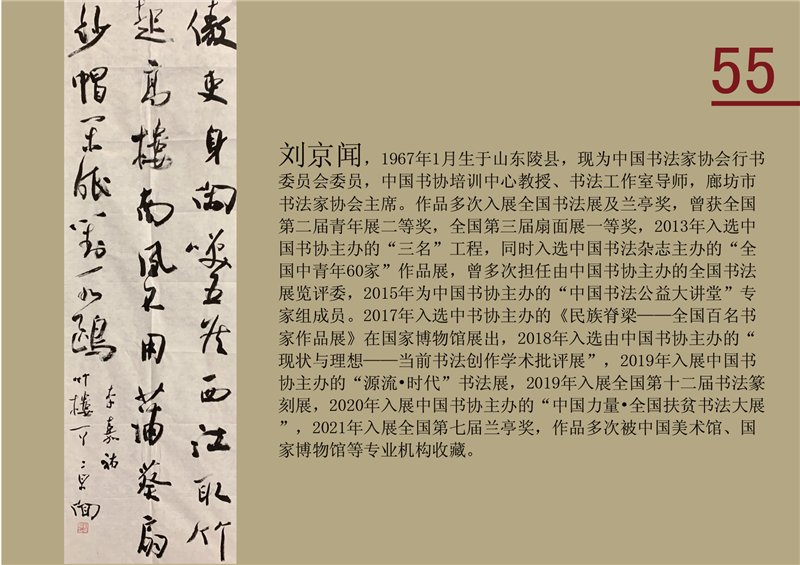 傲吏身閑笑五侯西江取竹
起高樓南風不用蒲葵扇
紗帽閑眠對水鷗
李嘉祐
竹樓
55
刘京闻，1967年1月生于山东陵县，现为中国书法家协会行书
委员会委员，中国书协培训中心教授、书法工作室导师，廊坊市
书法家协会主席。作品多次入展全国书法展及兰亭奖，曾获全国
第二届青年展二等奖，全国第三届扇面展一等奖，2013年入选中
国书协主办的“三名”工程，同时入选中国书法杂志主办的“全
国中青年60家”作品展，曾多次担任由中国书协主办的全国书法
展览评委，2015年为中国书协主办的“中国书法公益大讲堂”专
家组成员。2017年入选中书协主办的《民族脊梁——全国百名书
家作品展》在国家博物馆展出，2018年入选由中国书协主办的“
现状与理想——当前书法创作学术批评展”，2019年入展中国书
协主办的“源流•时代”书法展，2019年入展全国第十二届书法篆
刻展，2020年入展中国书协主办的“中国力量•全国扶贫书法大展
”，2021年入展全国第七届兰亭奖，作品多次被中国美术馆、国
家博物馆等专业机构收藏。